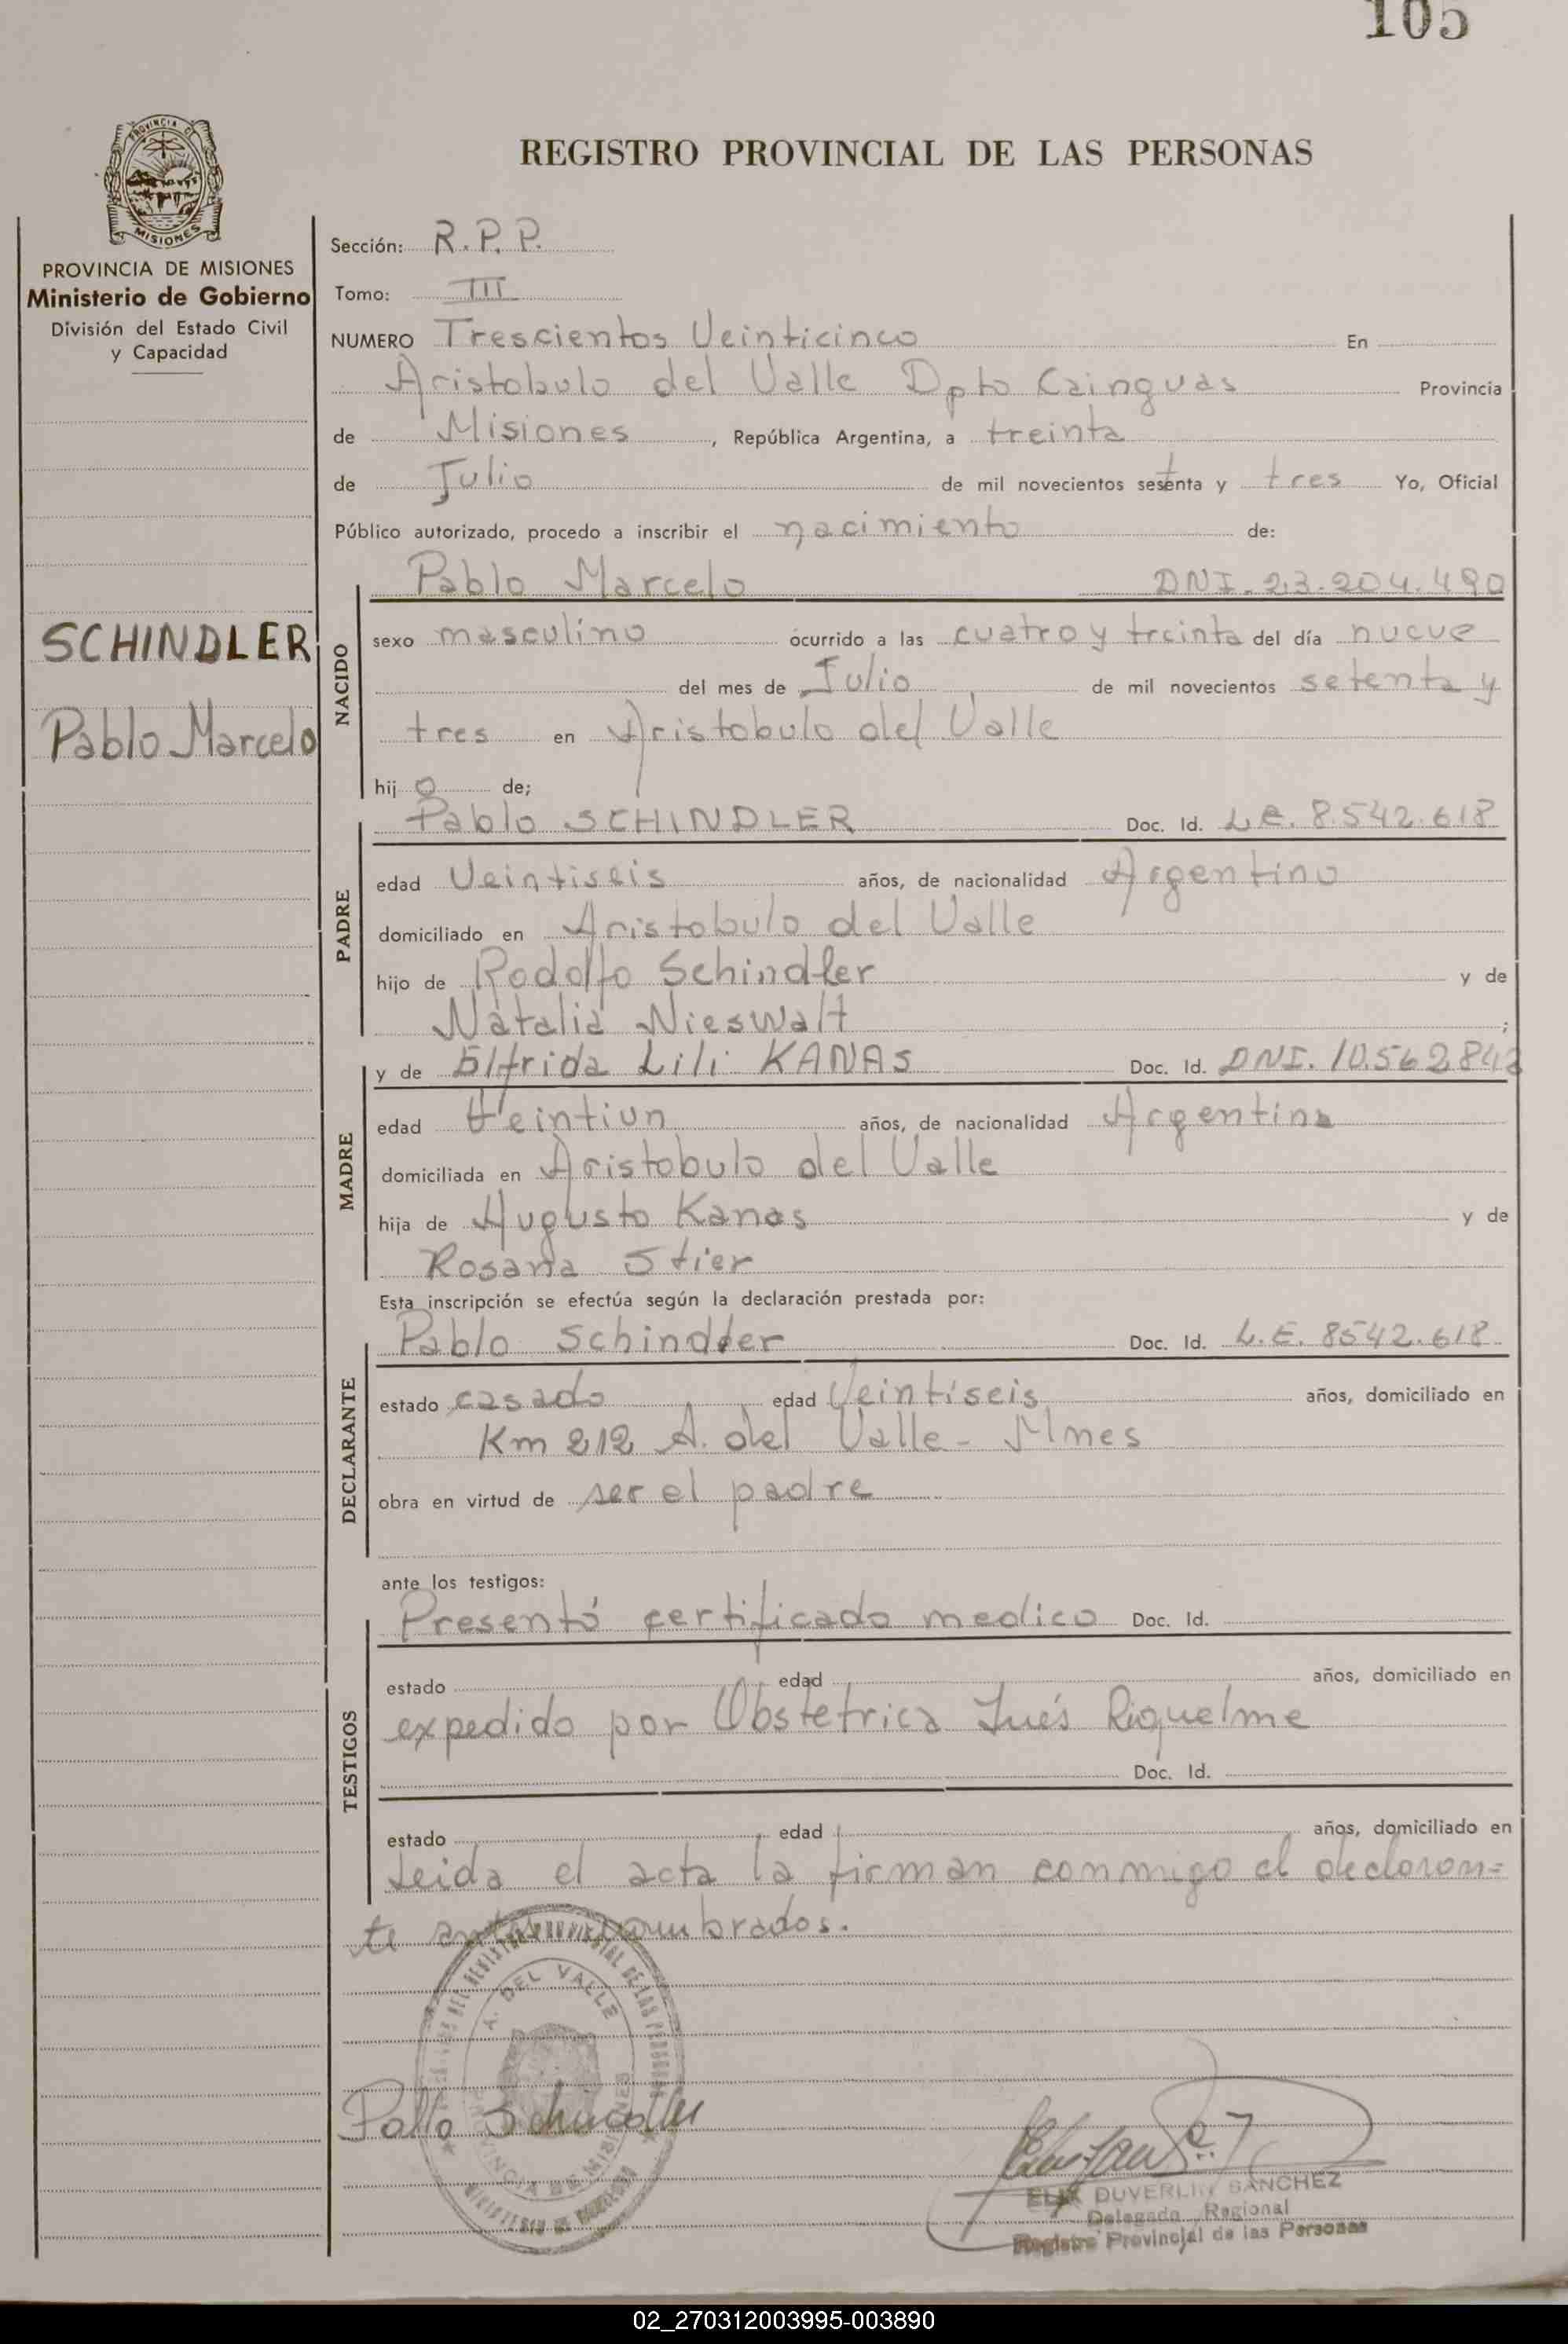 105
PROVINCIA DE
MISIONES
REGISTRO PROVINCIAL DE LAS PERSONAS
PROVINCIA DE MISIONES
Ministerio de Gobierno
División del Estado Civil
y Capacidad
SCHINDLER
Pablo Marcelo
Sección: R.P.P.
Tomo: III
NUMERO Trescientos Veinticinco En
Aristobulo del Valle Dpto Cainguas Provincia
de Misiones, República Argentina, a treinta
de Julio de mil novecientos setenta y tres Yo, Oficial
Público autorizado, procedo a inscribir el nacimiento de:
Pablo Marcelo DNI. 23.204.490
NACIDO
sexo masculino ocurrido a las cuatro y treinta del día nueve
del mes de Julio de mil novecientos setenta y
tres en Aristobulo del Valle
hijo de;
Pablo SCHINDLER Doc. Id. L.E. 8.542.618
PADRE
edad Veintiseis años, de nacionalidad Argentino
domiciliado en Aristobulo del Valle
hijo de Rodolfo Schindler y de
Natalia Nieswalt ;
y de Elfrida Lili KANAS Doc. Id. DNI. 10.562.842
MADRE
edad Veintiun años, de nacionalidad Argentina
domiciliada en Aristobulo del Valle
hija de Augusto Kanas y de
Rosana Stier
Esta inscripción se efectúa según la declaración prestada por:
Pablo Schindler Doc. Id. L.E. 8542.618
DECLARANTE
estado casado edad Veintiseis años, domiciliado en
Km 212 A. del Valle - Mnes
obra en virtud de ser el padre
ante los testigos:
Presentó certificado medico Doc. Id.
TESTIGOS
estado edad años, domiciliado en
expedido por Obstetrica Inés Riquelme
Doc. Id.
estado edad años, domiciliado en
Leida el acta la firman conmigo el declaran=
te antes nombrados.
A. DEL VALLE
PROVINCIA DE MISIONES
Pablo Schindler
DUVERLIY SANCHEZ
Delegado Regional
Registro Provincial de las Personas
02_270312003995-003890